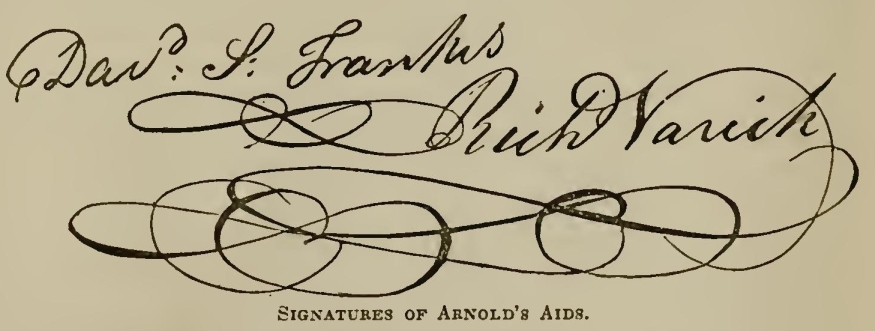 Davᵈ: S: Franks
Richᵈ Varick
SIGNATURES OF ARNOLD'S AIDS.